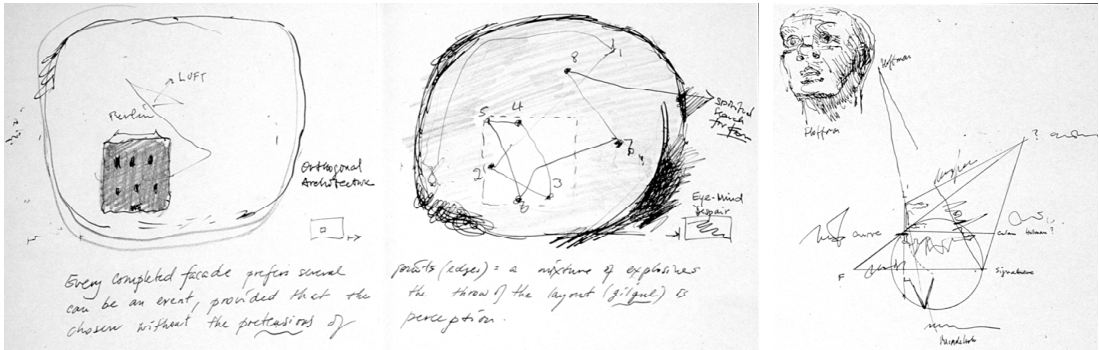 LUFT
Berlin
Orthogonal
Architecture
Every completed facade prefers several
can be an event, provided that the
chosen without the pretensions of
1
8
5
4
7
2
3
6
spiritual
search
for form
Eye-Mind
Despair
points (edges) = a mixture of explosives
the throw of the layout (gilgul) is
perception.
Platform
?
curve
F
Signature